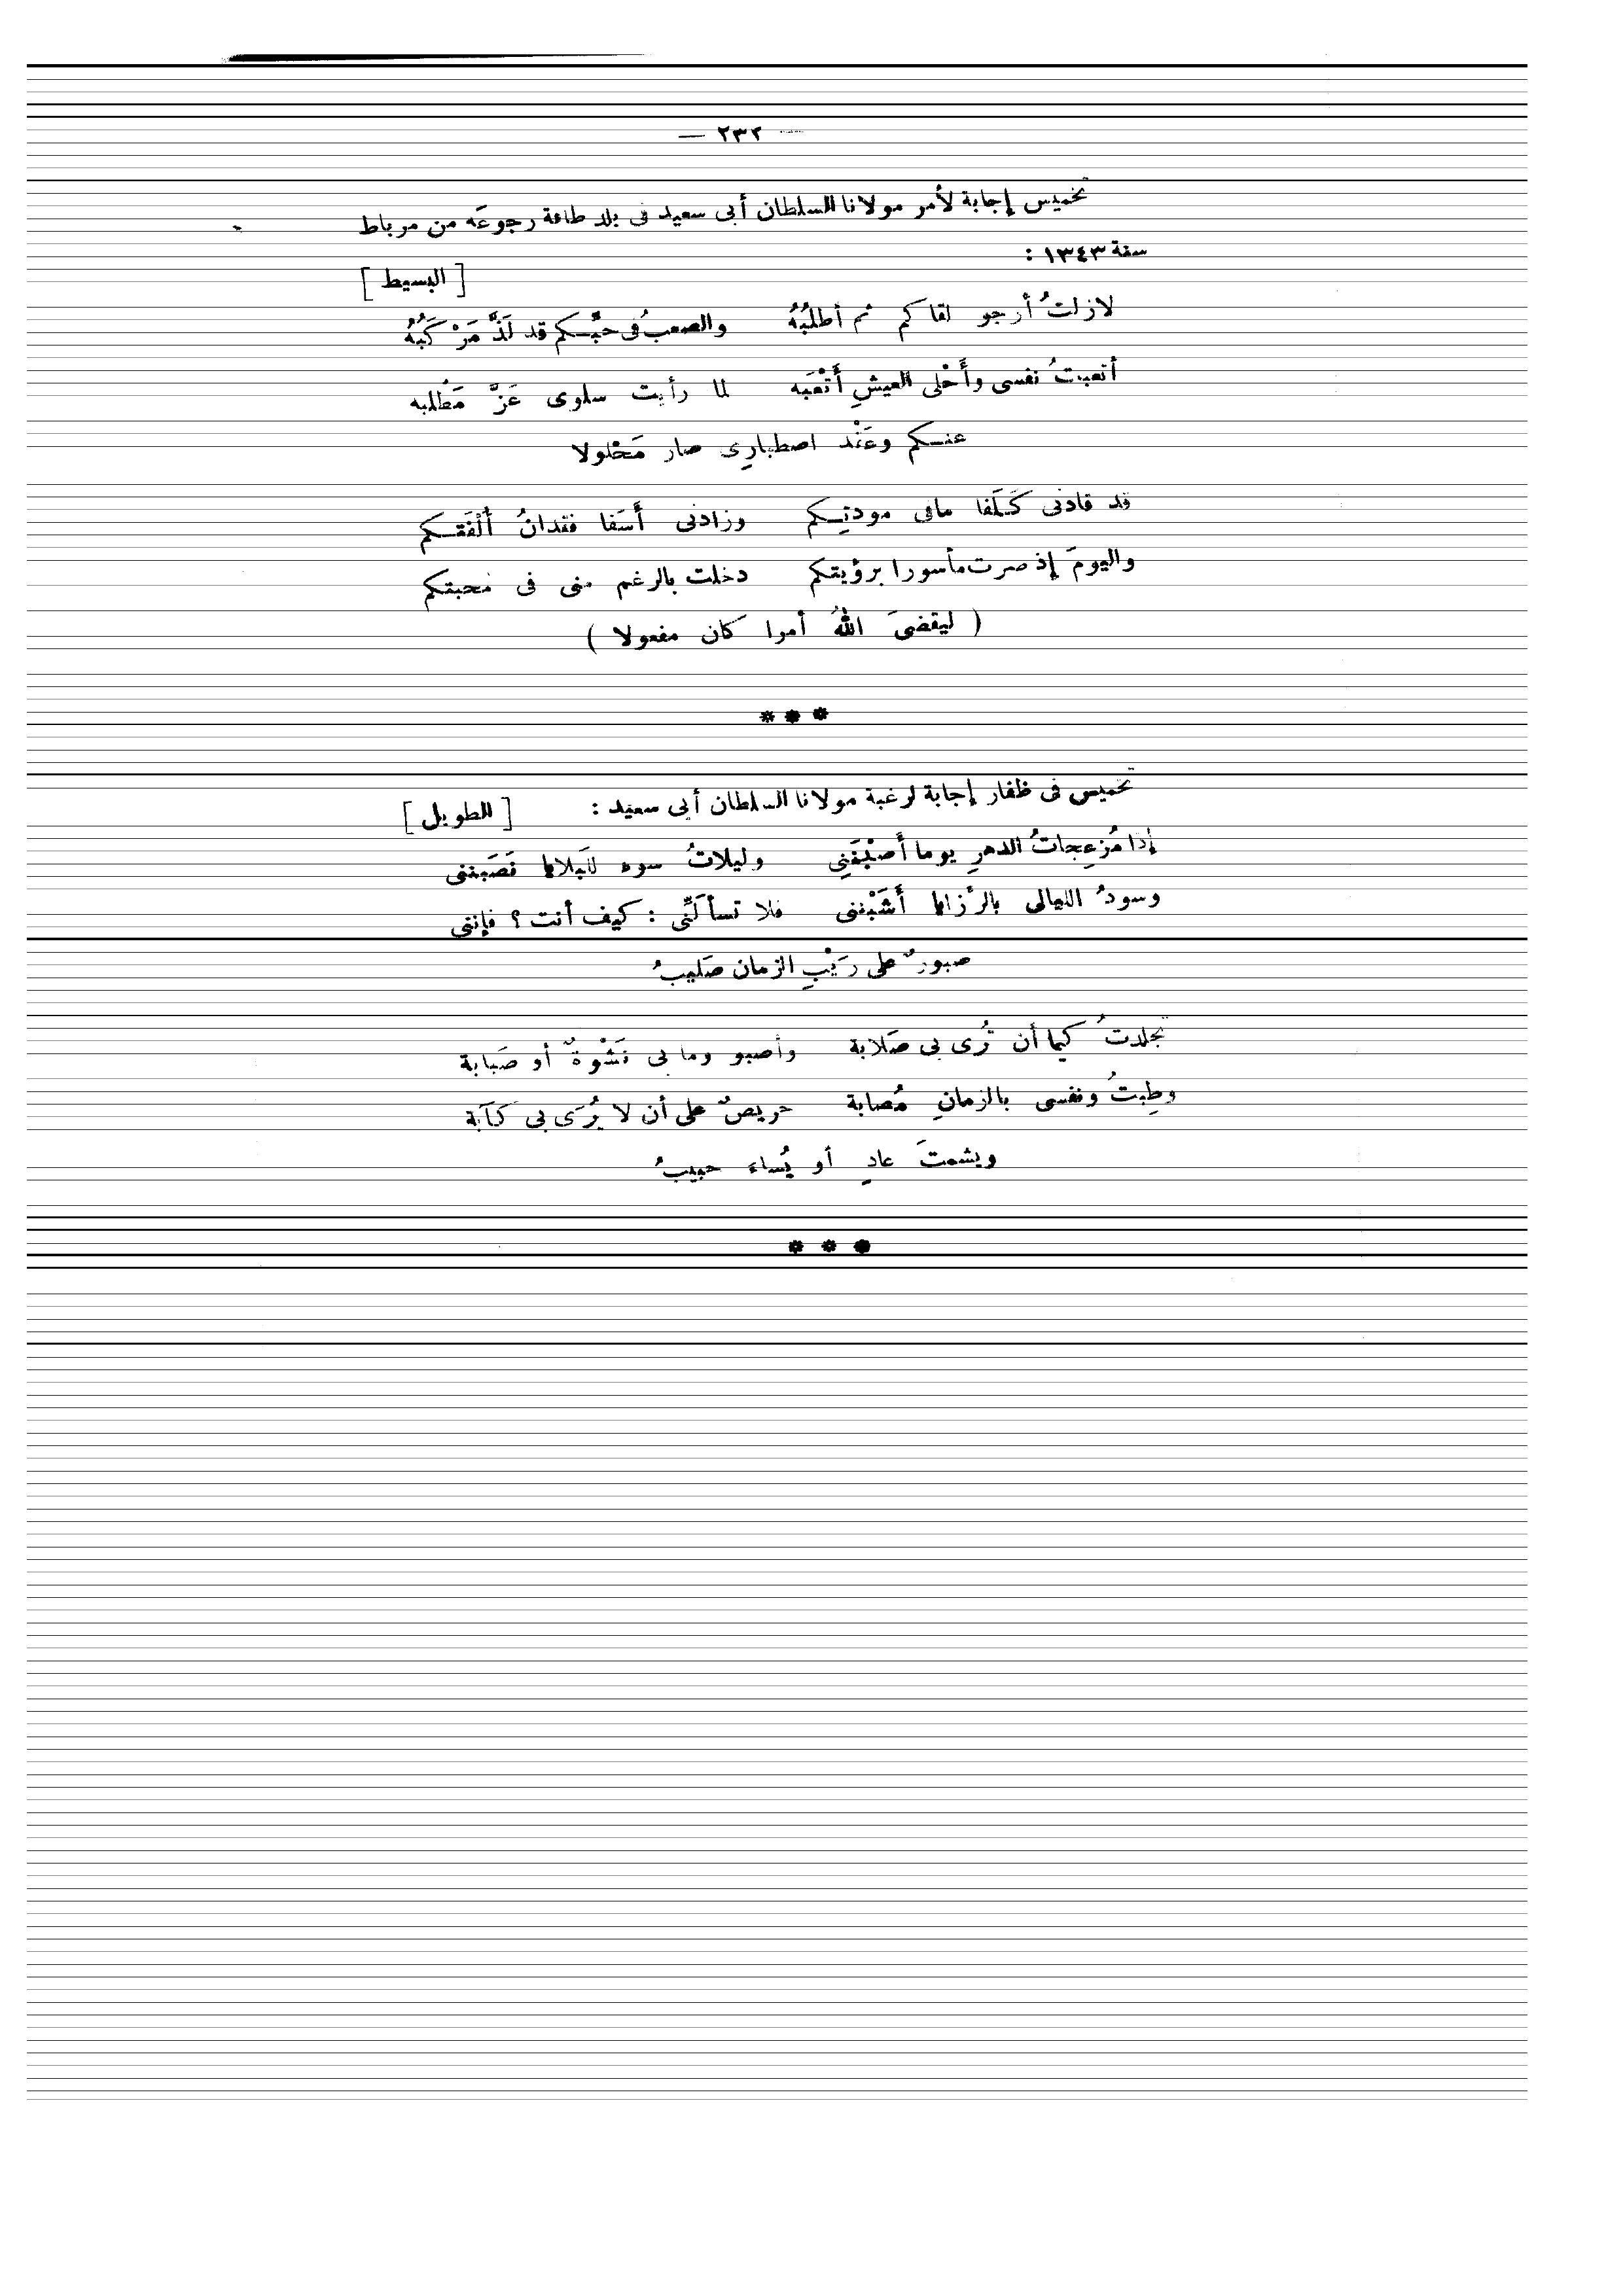 — ٢٣٢ —
تخميس إجابة لأمر مولانا السلطان أبى سعيد فى بلد طاقة رجوعَه من مرباط
سنة ١٣٤٣ :
[ البسيط ]
لازلتُ أرجو لقاكم ثم أطلبُهُ والصعبُ فى حبِّكم قد لَذَّ مَرْكَبُهُ
أتعبتُ نفسى وأَحْلى العيشِ أَتْعَبه لما رأيت سلوى عَزَّ مَطْلبه
عنكم وعَقْد اصطبارِى صار مَحْلولا
قد قادنى كَلَفا مافى مودتِكم وزادنى أَسَفا فقدانُ أُلْفَتكم
واليومَ إذ صرت مأسورا برؤيتكم دخلت بالرغم منى فى محبتكم
( ليقضىَ اللهُ أمرا كان مفعولا )
* * *
تخميس فى ظفار إجابة لرغبة مولانا السلطان أبى سعيد : [ الطويل ]
إذا مُزعِجاتُ الدهرِ يوما أَصَبْنَنِى وليلاتُ سوء للبَلايا نَصَبننى
وسودُ الليالى بالرَّزايا أَشَبْننى فلا تسألَنِّى : كيف أنت ؟ فإننى
صبورٌ على رَيْبِ الزمان صَليبُ
تجلدتُ كيما أن تُرى بى صَلابة وأصبو وما بى نَشْوةٌ أو صَبابة
وطِبتُ ونفسى بالزمانِ مُصابة حريصٌ على أن لا يُرَى بى كآبة
ويشمتَ عادٍ أو يُساءَ حبيبُ
* * *